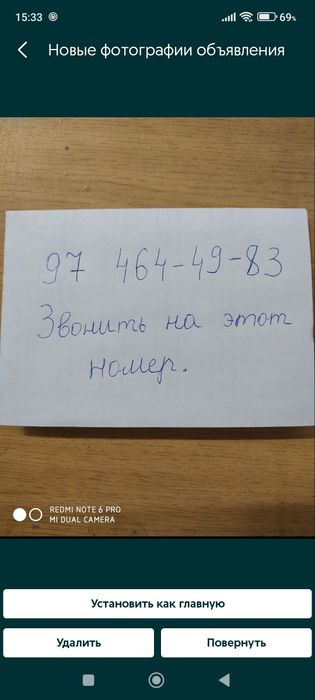 15:33 69%
Новые фотографии объявления
97 464-49-83
Звонить на этот
номер.
REDMI NOTE 6 PRO
MI DUAL CAMERA
Установить как главную
Удалить Повернуть